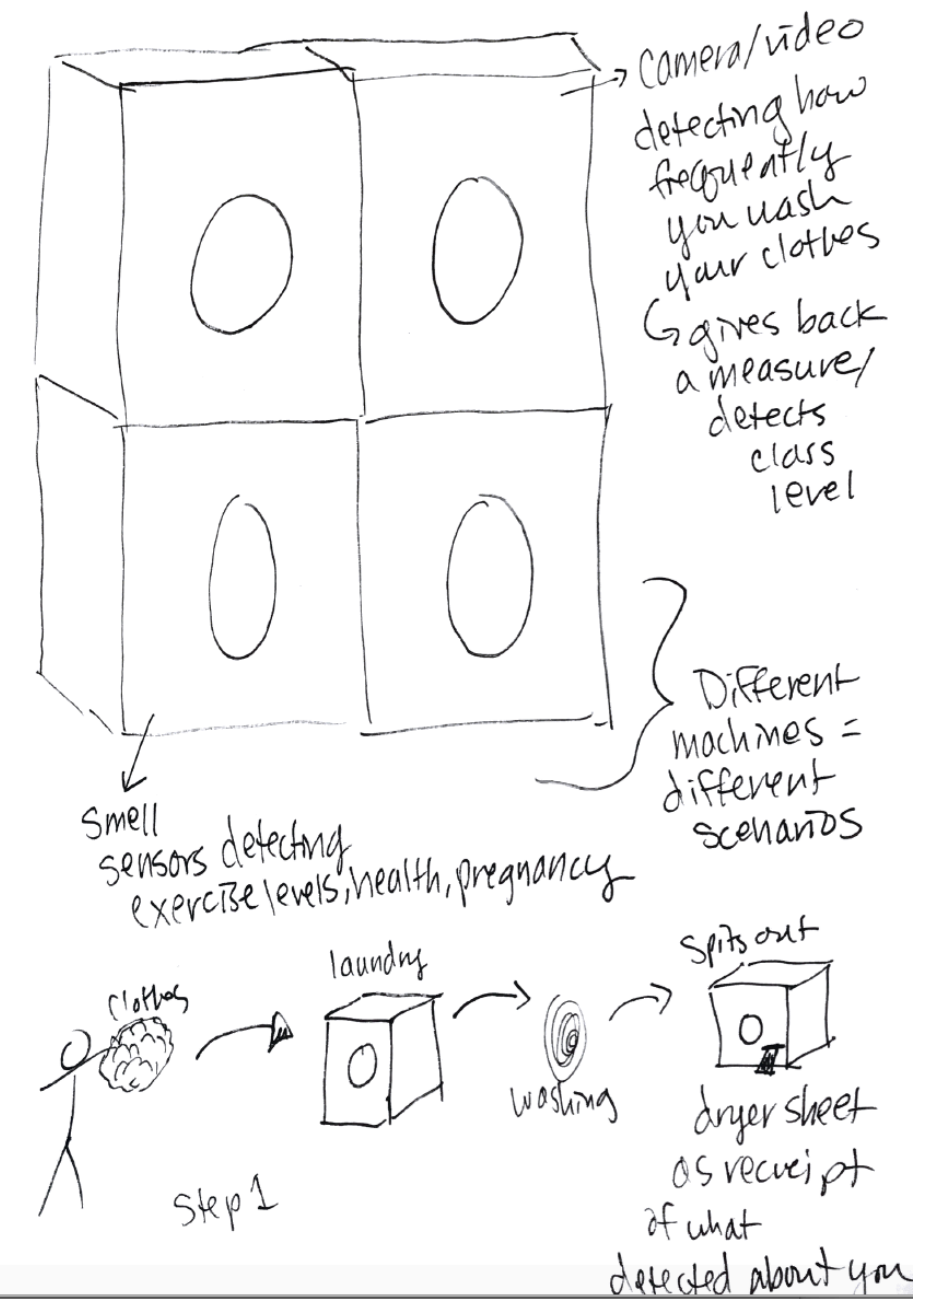 camera/video
detecting how
frequently
you wash
your clothes
gives back
a measure/
detects
class
level
Different
machines =
different
scenarios
smell
sensors detecting
exercise levels, health, pregnancy
clothes
laundry
washing
spits out
dryer sheet
as receipt
of what
detected about you
step 1